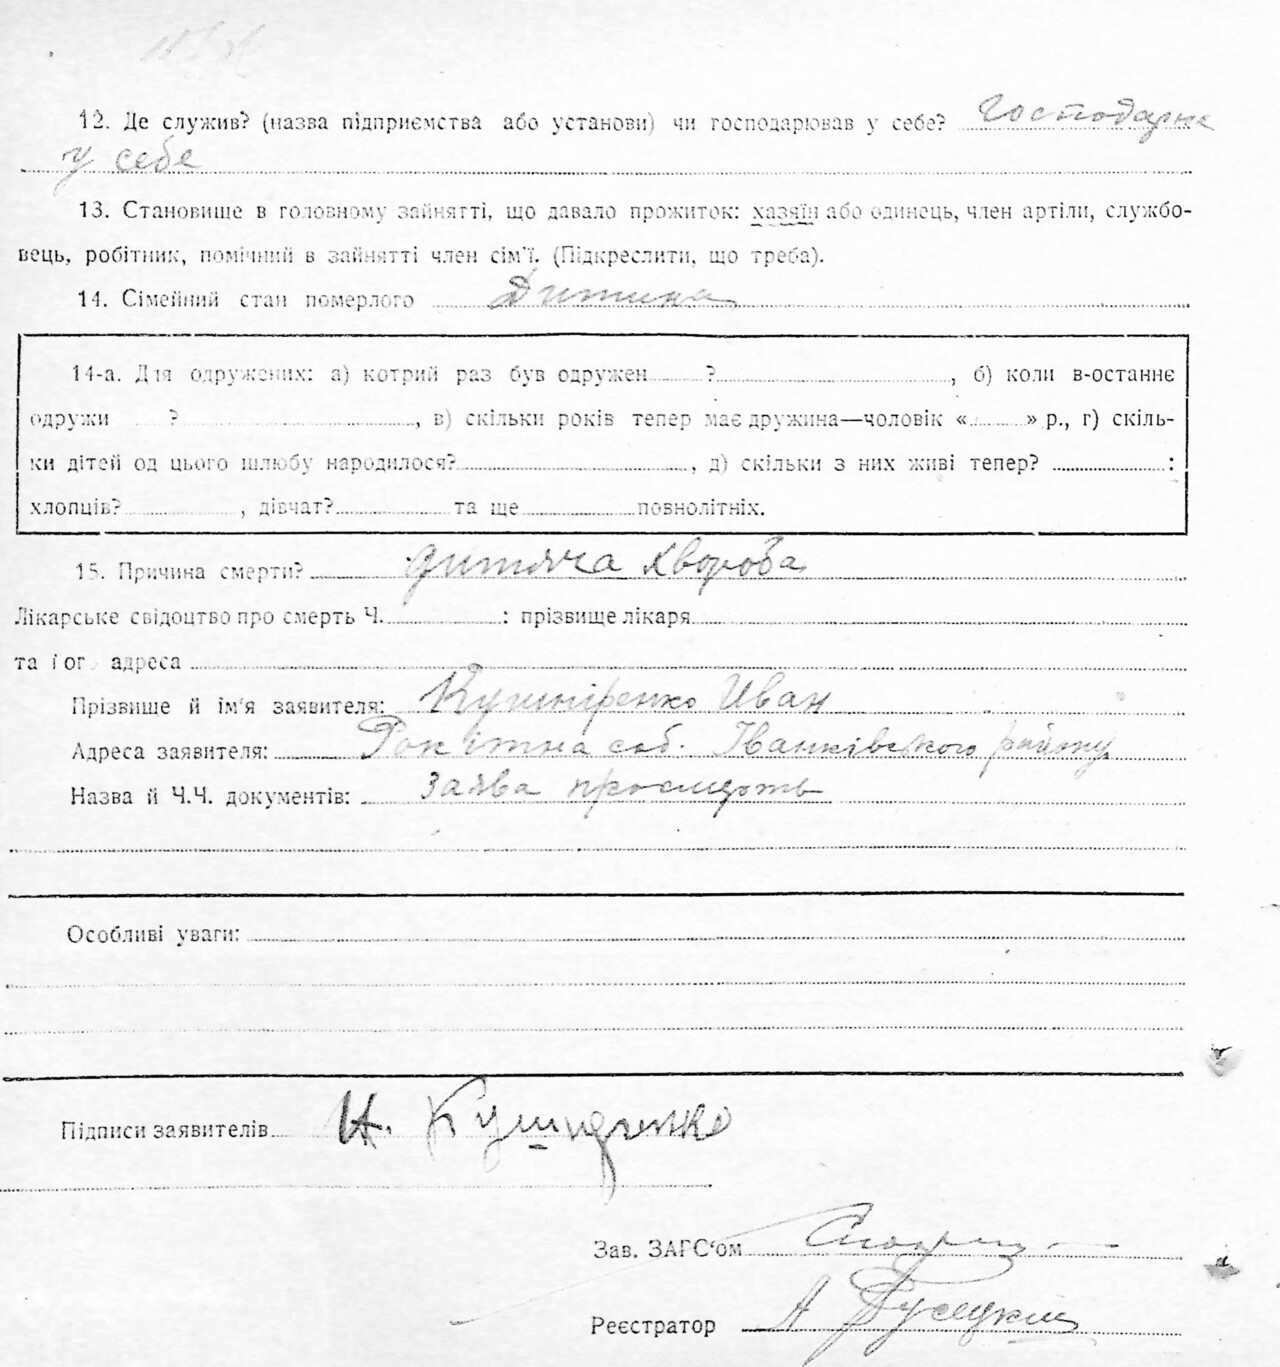 12. Де служив? (назва підприємства або установи) чи господарював у себе? Господарює
у себе
13. Становище в головному зайнятті, що давало прожиток: хазяїн або одинець, член артіли, службо-
вець, робітник, помічний в зайнятті член сім'ї. (Підкреслити, що треба).
14. Сімейний стан померлого Дитина
14-а. Для одружених: а) котрий раз був одружен ? , б) коли в-останнє
одружи ? , в) скільки років тепер має дружина—чоловік « » р., г) скіль-
ки дітей од цього шлюбу народилося? , д) скільки з них живі тепер? :
хлопців? , дівчат? та ще повнолітніх.
15. Причина смерти? дитяча хвороба
Лікарське свідоцтво про смерть Ч. : прізвище лікаря
та його адреса
Прізвище й ім'я заявителя: Кушніренко Иван
Адреса заявителя: Рокітна саб. Іванківського району
Назва й Ч.Ч. документів: Заява про смерть
Особливі уваги:
Підписи заявителів И. Кушниренко
Зав. ЗАГС'ом
Реєстратор А